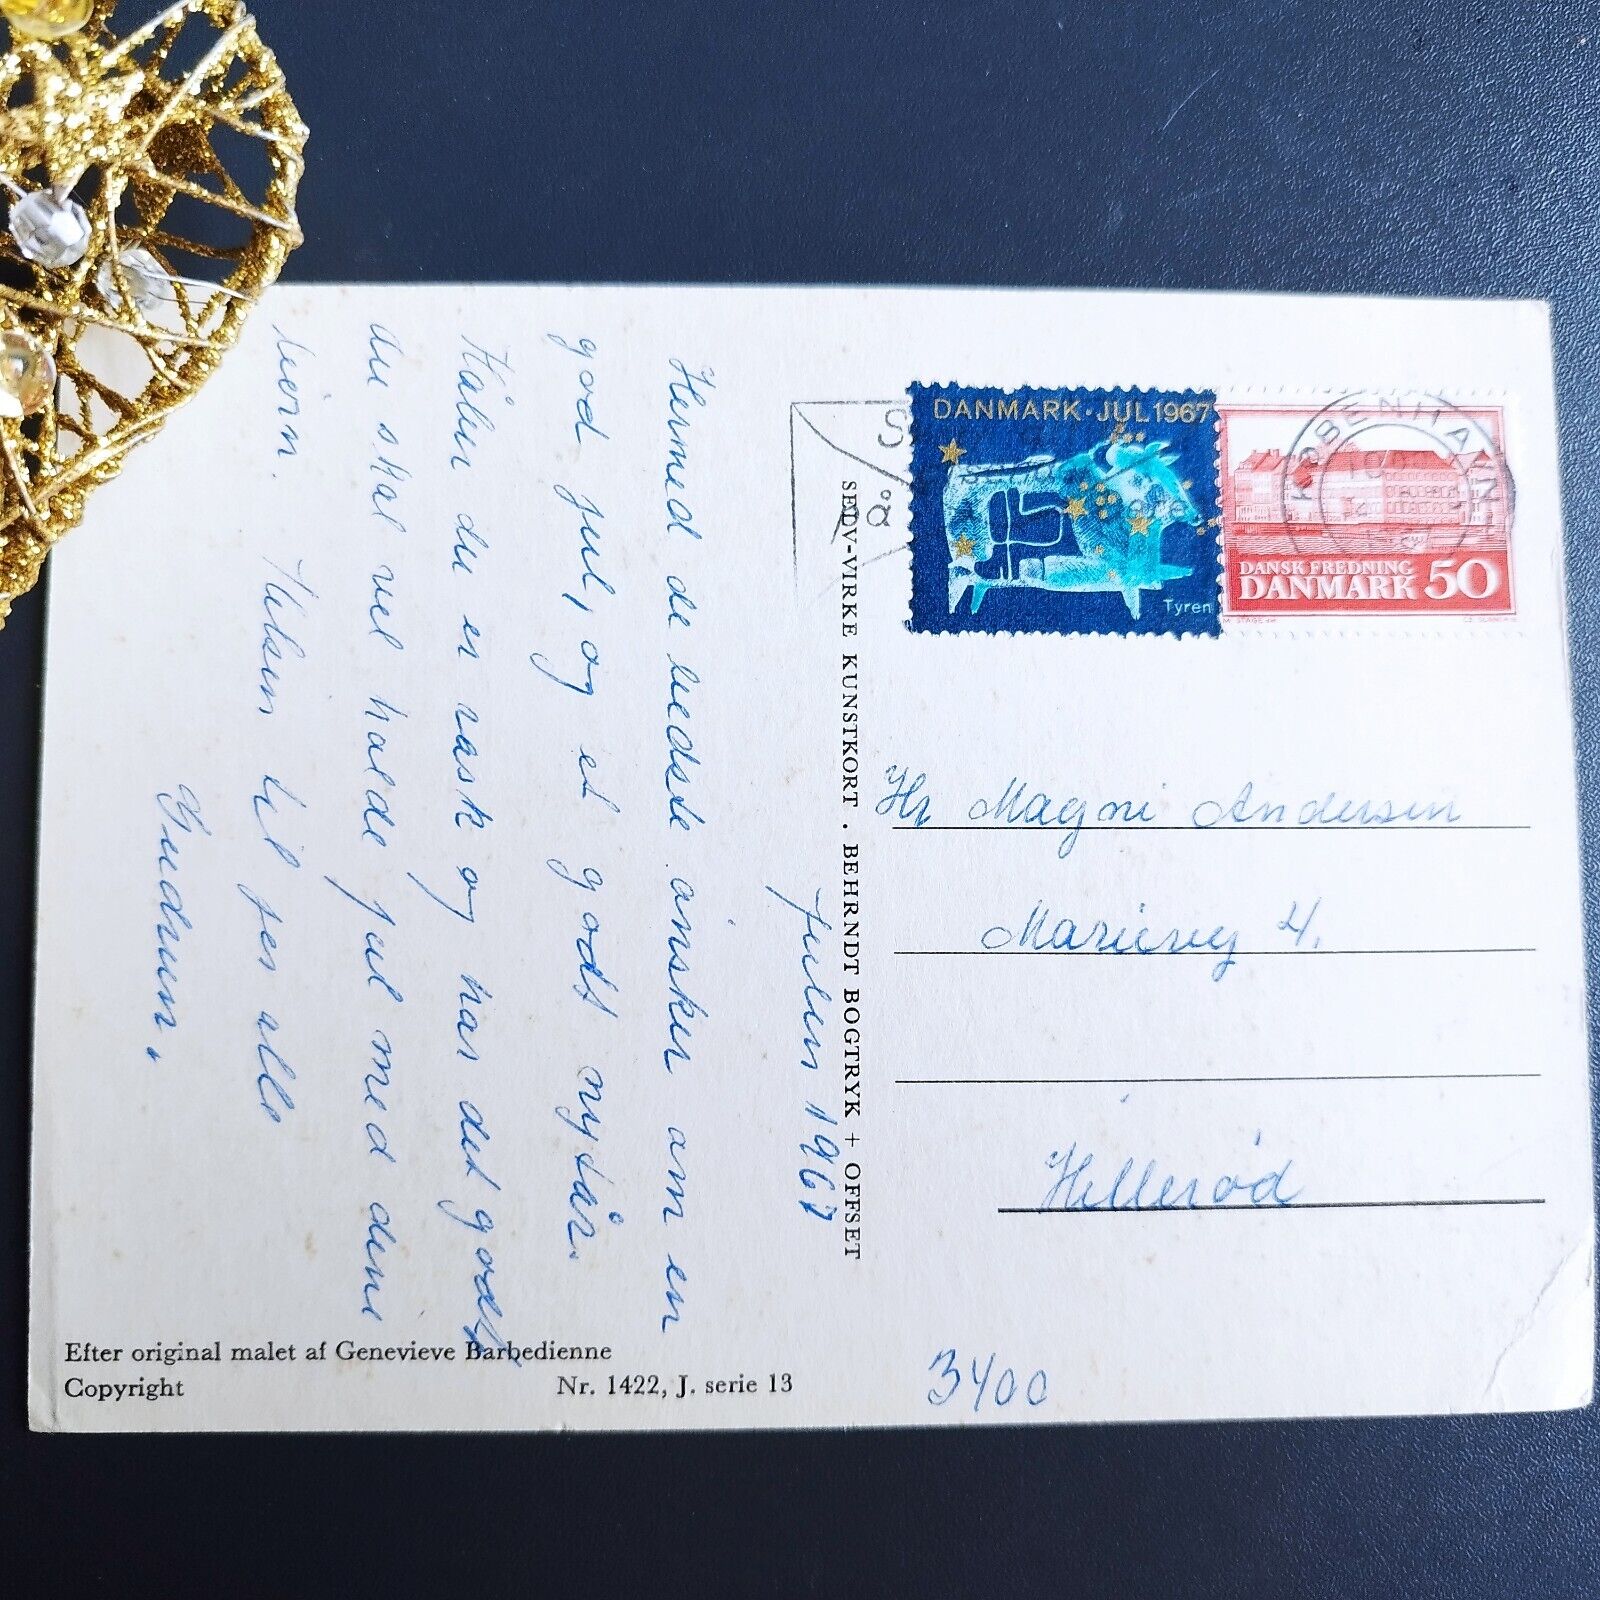 Julen 1967
Hermed de bedste ønsker om en
god jul, og et godt nytår.
Håber du er rask og har det godt
du skal vel holde jul med dine
børn. Hilsen til jer alle
Gudrun.
SEDV-VIRKE KUNSTKORT . BEHRNDT BOGTRYK + OFFSET
DANMARK · JUL 1967
Tyren
KØBENHAVN
DANSK FREDNING
DANMARK 50
Hr Magni Andersen
Marievej 4.
Hillerød
3400
Efter original malet af Genevieve Barbedienne
Copyright Nr. 1422, J. serie 13